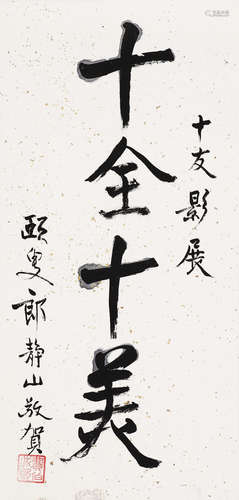 十友影展
十全十美
頤叟郎静山敬賀